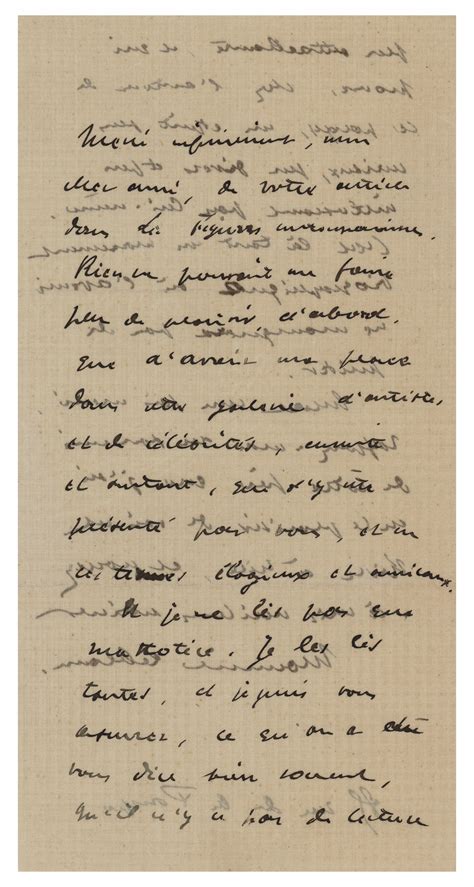 Merci infiniment, mon
cher ami, de votre article
dans les Figures contemporaines.
Rien ne pouvait me faire
plus de plaisir d'abord,
que d'avoir une place
dans cette galerie d'artistes
et de célébrités, ensuite
et surtout, que d'y être
présenté par vous, et en
ces termes élogieux et amicaux.
Je ne lis pas que
ma notice. Je les lis
toutes, et je puis vous
assurer, ce qu'on a dû
vous dire bien souvent,
qu'il n'y a pas de lecture